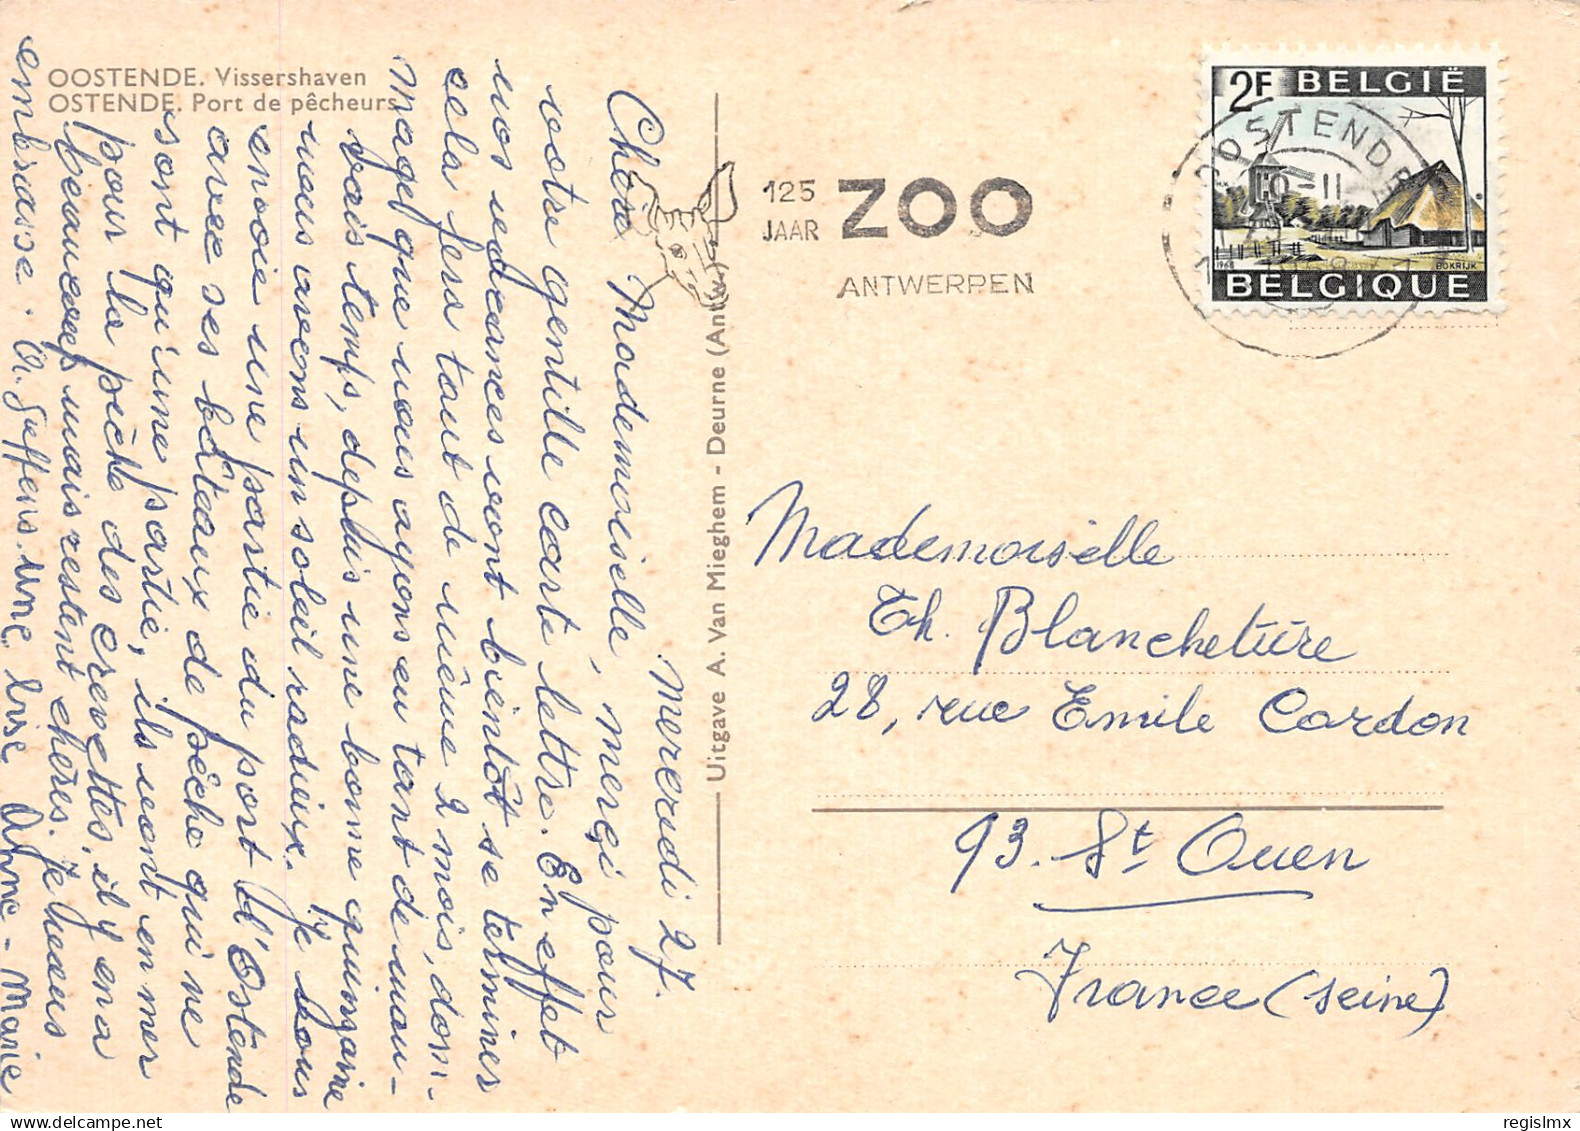 OOSTENDE. Vissershaven
OSTENDE. Port de pêcheurs
Mercredi 27.
Chère Mademoiselle, merci pour
votre gentille carte lettre. En effet
vos vacances vont bientôt se terminer
cela fera tout de même 2 mois, dom-
mage que nous ayons eu tant de mau-
vais temps, depuis une bonne quinzaine
nous avons un soleil radieux. Je vous
envoie une partie du port d'Ostende
avec ses bateaux de pêche qui ne
sont qu'une partie, ils vont en mer
pour la pêche des crevettes, il y en a
beaucoup mais restent chères. Je vous
embrasse.
Anne-Marie
Uitgave A. Van Mieghem - Deurne (Antw.)
125
JAAR
ZOO
ANTWERPEN
OOSTENDE
-11
2F BELGIË
1968
BOKRIJK
BELGIQUE
Mademoiselle
Eh. Blancheture
28, rue Emile Cordon
93. St Ouen
France (seine)
regislmx